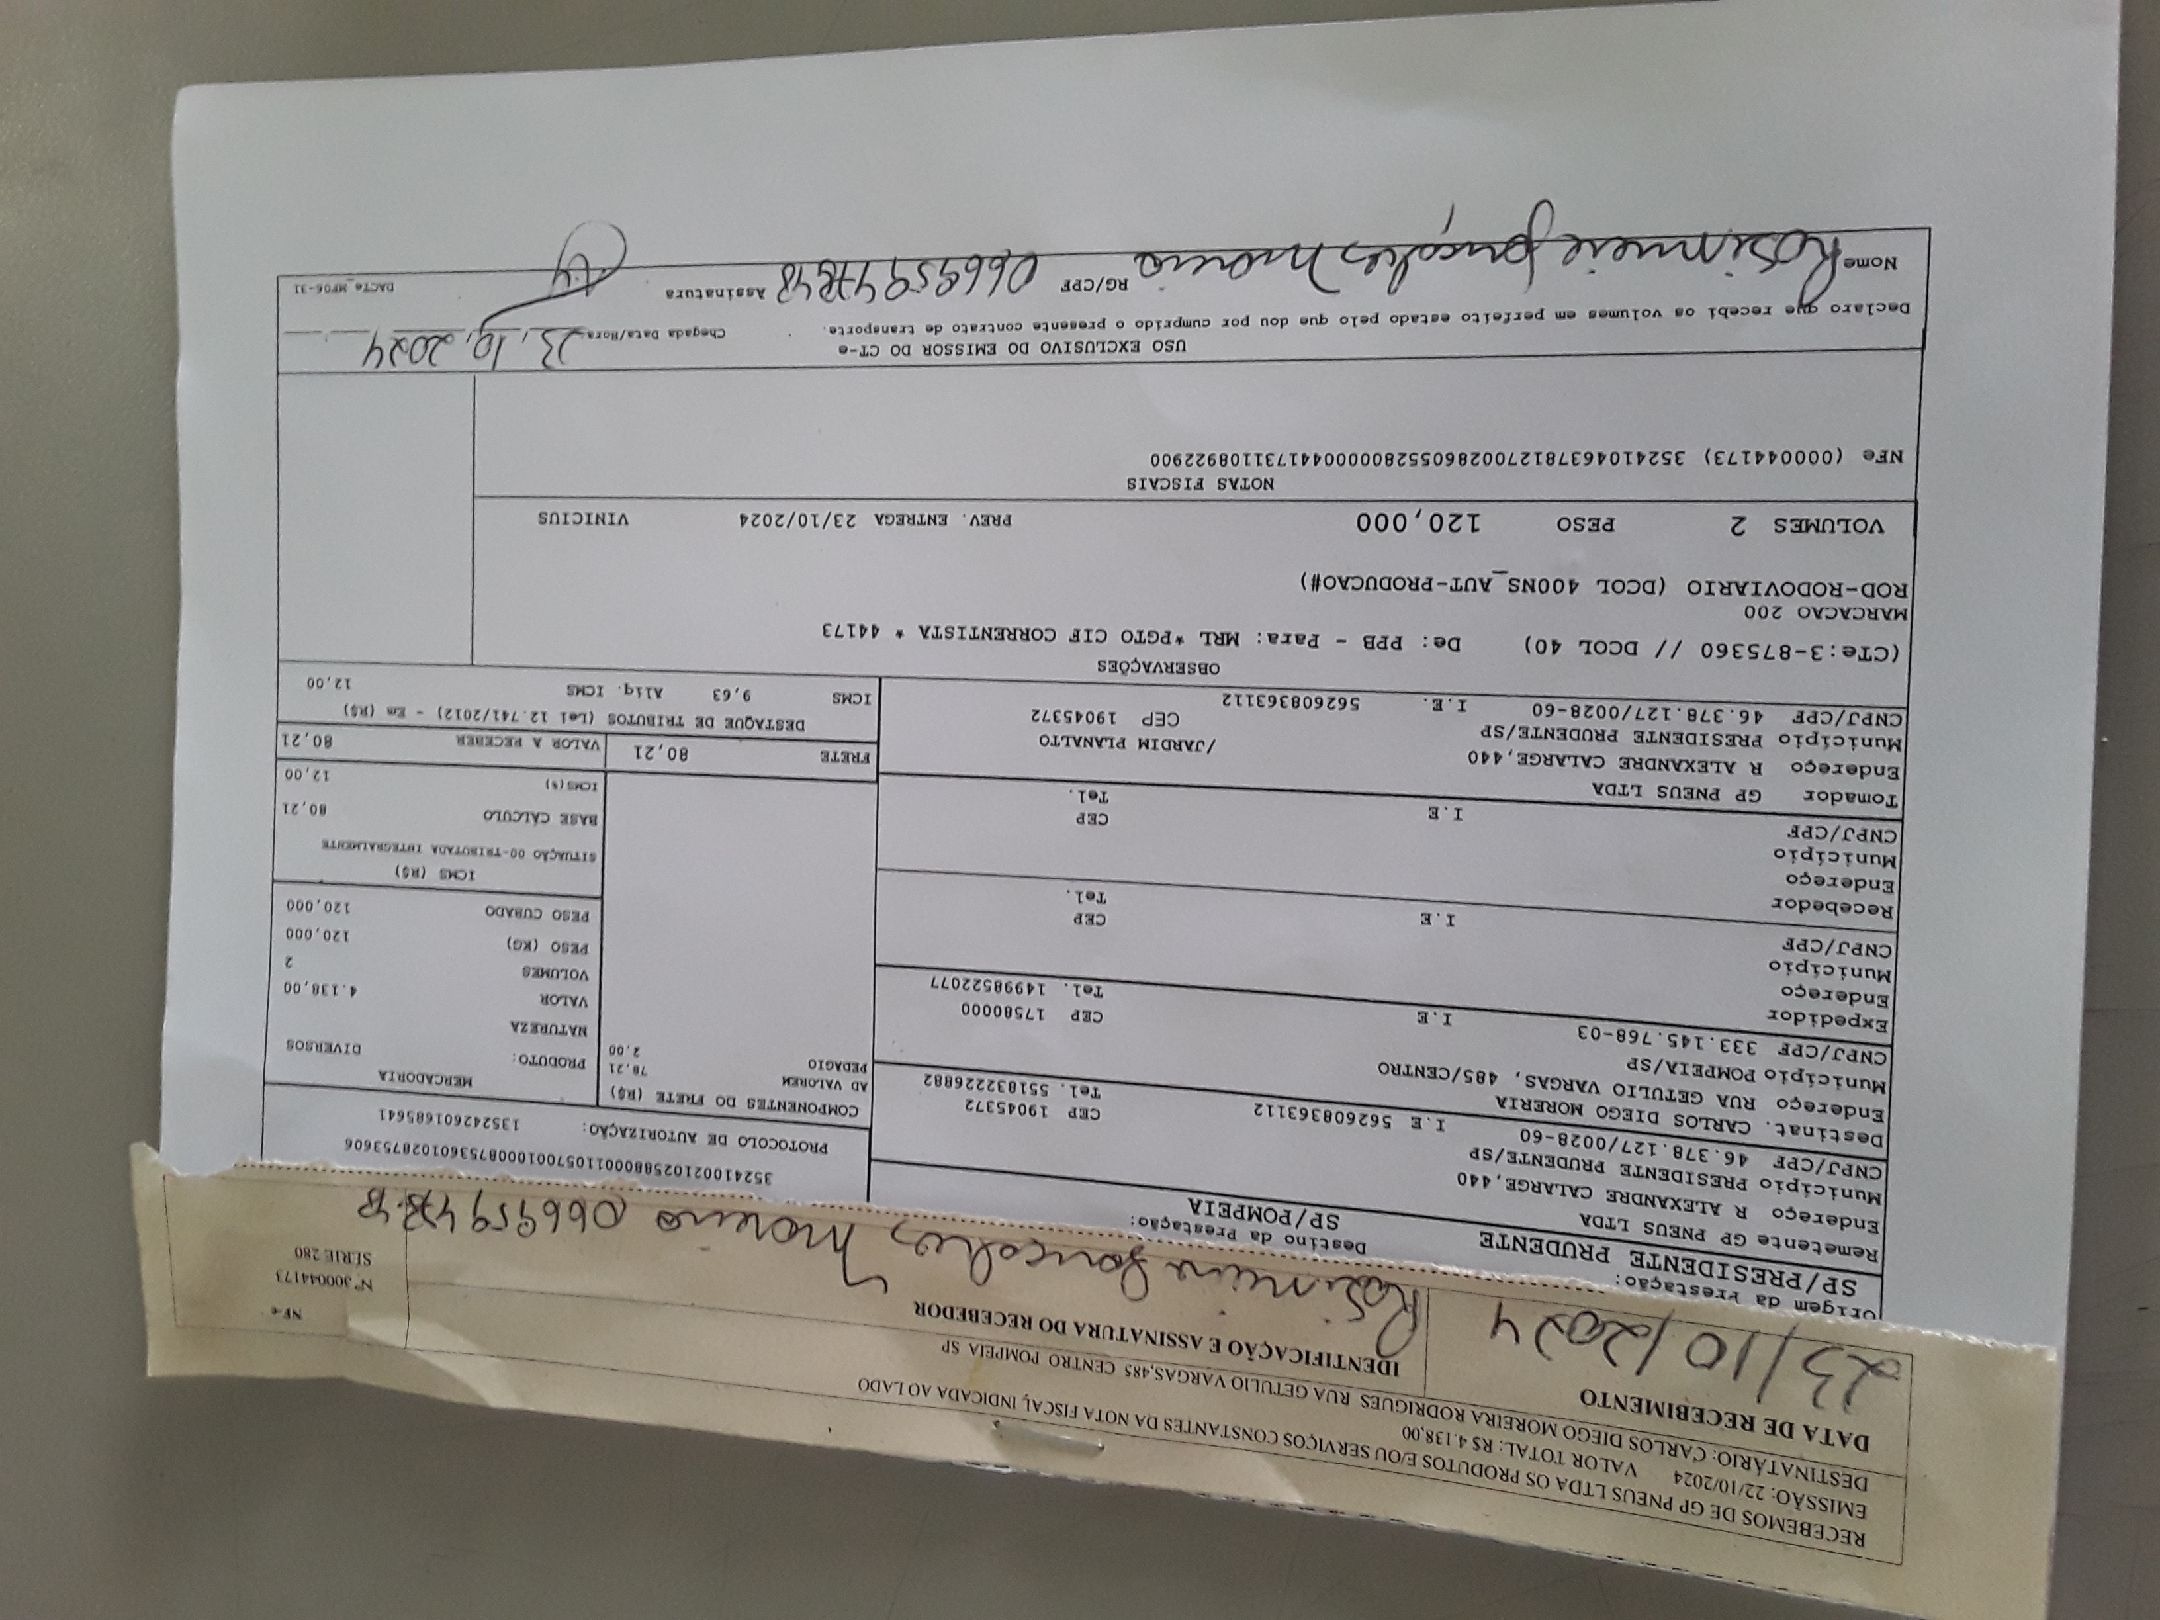 RECEBEMOS DE GP PNEUS LTDA OS PRODUTOS E/OU SERVIÇOS CONSTANTES DA NOTA FISCAL INDICADA AO LADO
EMISSÃO: 22/10/2024 VALOR TOTAL: R$ 4.138,00
DESTINATÁRIO: CARLOS DIEGO MOREIRA RODRIGUES RUA GETULIO VARGAS,485 CENTRO POMPEIA SP
DATA DE RECEBIMENTO
23/10/2024
IDENTIFICAÇÃO E ASSINATURA DO RECEBEDOR
Gonçalves Moreira
NF-e
Nº 300044173
SÉRIE 280
Origem da Prestação:
SP/PRESIDENTE PRUDENTE
Destino da Prestação:
SP/POMPEIA
Remetente GP PNEUS LTDA
Endereço R ALEXANDRE CALARGE,440
Município PRESIDENTE PRUDENTE/SP CEP 19045372
CNPJ/CPF 46.378.127/0028-60 I.E 562608363112 Tel. 5518322268​82
Destinat. CARLOS DIEGO MORERIA
Endereço RUA GETULIO VARGAS, 485/CENTRO
Município POMPEIA/SP CEP 17580000
CNPJ/CPF 333.145.768-03 I.E Tel. 14998522077
Expedidor
Endereço
Município CEP
CNPJ/CPF I.E Tel.
Recebedor
Endereço
Município CEP
CNPJ/CPF I.E Tel.
Tomador GP PNEUS LTDA
Endereço R ALEXANDRE CALARGE,440 /JARDIM PLANALTO
Município PRESIDENTE PRUDENTE/SP CEP 19045372
CNPJ/CPF 46.378.127/0028-60 I.E. 562608363112
PROTOCOLO DE AUTORIZAÇÃO: 135242601685641
COMPONENTES DO FRETE (R$)
AD VALOREM 78,21
PEDAGIO 2,00
MERCADORIA
PRODUTO: DIVERSOS
NATUREZA
VALOR 4.138,00
VOLUMES 2
PESO (KG) 120,000
PESO CUBADO 120,000
ICMS (R$)
SITUAÇÃO 00-TRIBUTADA INTEGRALMENTE
BASE CÁLCULO 80,21
ICMS(%) 12,00
FRETE 80,21 VALOR A RECEBER 80,21
DESTAQUE DE TRIBUTOS (Lei 12.741/2012) - Em (R$)
ICMS 9,63 Aliq. ICMS 12,00
OBSERVAÇÕES
(CTe:3-875360 // DCOL 40) De: PPB - Para: MRL *PGTO CIF CORRENTISTA * 44173
MARCACAO 200
ROD-RODOVIARIO (DCOL 400NS_AUT-PRODUCAO#)
VOLUMES 2 PESO 120,000 PREV. ENTREGA 23/10/2024 VINICIUS
NOTAS FISCAIS
NFe (000044173)
USO EXCLUSIVO DO EMISSOR DO CT-e
Declaro que recebi os volumes em perfeito estado pelo que dou por cumprido o presente contrato de transporte. Chegada Data/Hora 23,10,2024
Nome Rosimeire Gonçalves Moreira RG/CPF Assinatura
DACTe_MF06-31